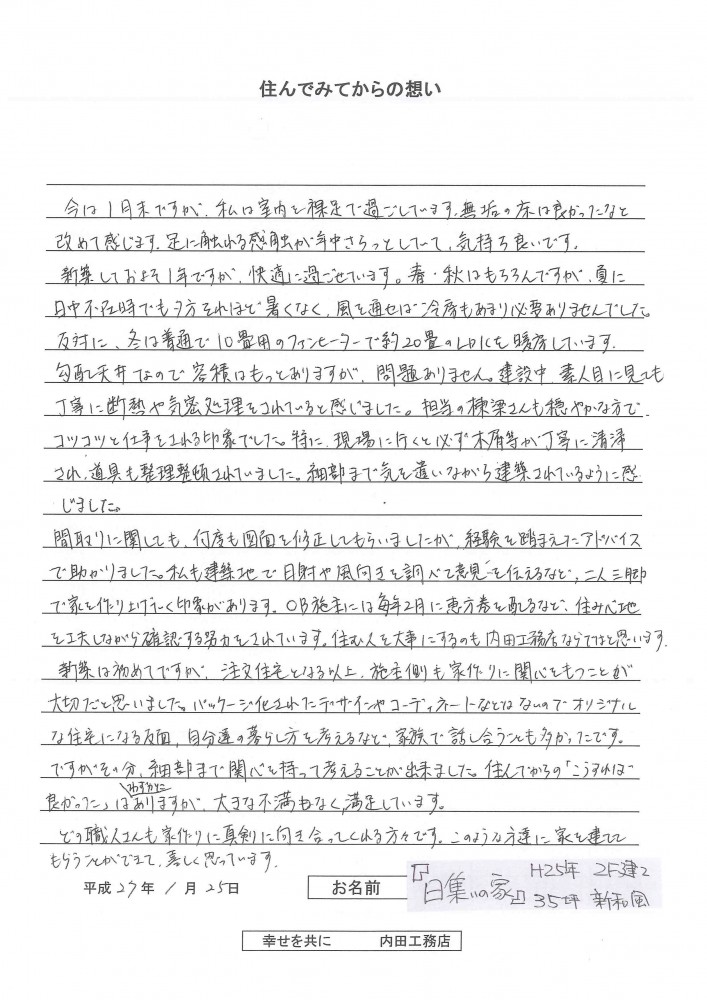 住んでみてからの想い
今は1月末ですが、私は室内を裸足で過ごしています。無垢の床は良かったなと
改めて感じます。足に触れる感触が年中さらっとしていて、気持ち良いです。
新築しておよそ1年ですが、快適に過ごせています。春・秋はもちろんですが、夏に
日中不在時でも夕方それほど暑くなく、風を通せば冷房もあまり必要ありませんでした。
反対に、冬は普通で10畳用のファンヒーターで約20畳のLDKを暖房しています。
勾配天井なので容積はもっとありますが、問題ありません。建設中、素人目に見ても
丁寧に断熱や気密処理をされていると感じました。担当の棟梁さんも穏やかな方で、
コツコツと仕事をされる印象でした。特に、現場に行くと必ず木屑等が丁寧に清掃
され、道具も整理整頓されていました。細部まで気を遣いながら建築されているように感
じました。
間取りに関しても、何度も図面を修正してもらいましたが、経験を踏まえたアドバイス
で助かりました。私も建築地で日射や風向きを調べて意見を伝えるなど、二人三脚
で家を作り上げていく印象があります。OB施主には毎年2月に恵方巻を配るなど、住み心地
を工夫しながら確認する努力をされています。住む人を大事にするのも内田工務店ならではと思います。
新築は初めてですが、注文住宅となる以上、施主側も家作りに関心をもつことが
大切だと思いました。パッケージ化されたデザインやコーディネートなどはないのでオリジナル
な住宅になる反面、自分達の暮らし方を考えるなど、家族で話し合うことも多かったです。
ですがその分、細部まで関心を持って考えることが出来ました。住んでからの「こうすれば
良かった」はわずかにありますが、大きな不満もなく、満足しています。
どの職人さんも家作りに真剣に向き合ってくれる方々です。このような方達に家を建てて
もらうことができて、喜しく思っています。
平成27年1月25日 お名前 『日集いの家』 H25年 2F建て
35坪 新和風
幸せを共に 内田工務店